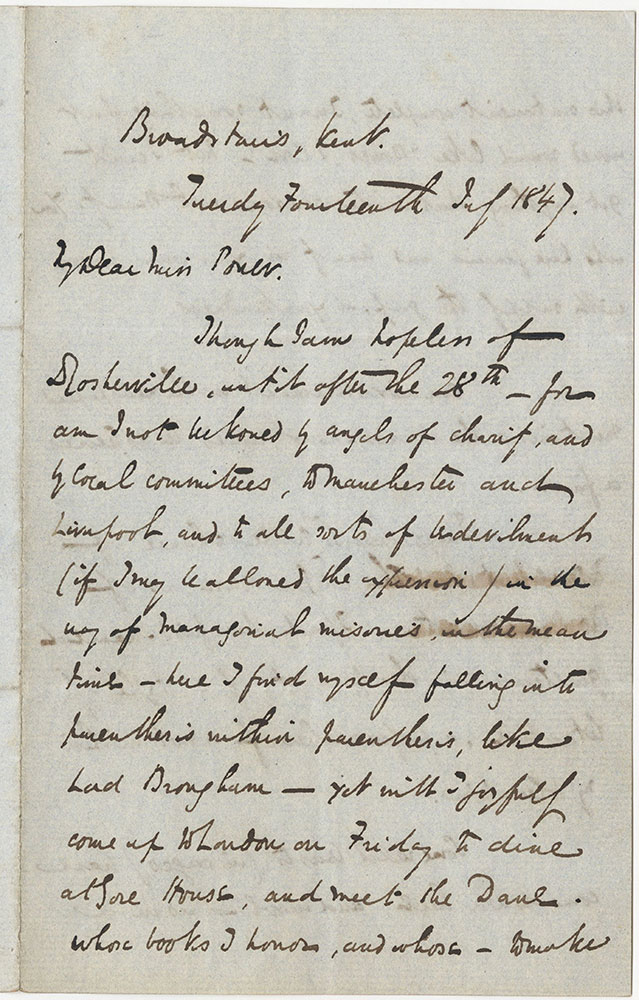 Broadstairs, Kent.
Tuesday Fourteenth July 1847.
My Dear Miss Power.
Though I am hopeless of
Rosherville, until after the 28th – for
am I not beckoned by angels of charity, and
by local committees, to Manchester and
Liverpool, and to all sorts of bedevilments
(if I may be allowed the expression) in the
way of managerial miseries, in the mean
time – here I find myself falling into
parenthesis within parenthesis, like
Lord Brougham – yet will I joyfully
come up to London on Friday to dine
at Gore House, and meet the Dane.
whose books I honor, and whose – to make